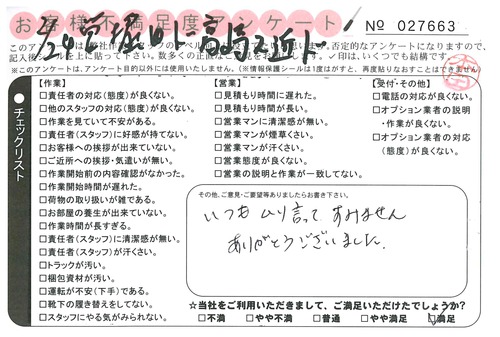 お客様不満足度アンケート
No 027663
記入後シールを上に貼って下さい。
※このアンケートは、アンケート目的以外には使用いたしません。(※情報保護シールは1度はがすと、再度貼りなおすことはできません)
チェックリスト
【作業】
□責任者の対応(態度)が良くない。
□他のスタッフの対応(態度)が良くない。
□作業を見ていて不安がある。
□責任者(スタッフ)に好感が持てない。
□お客様への挨拶が出来ていない。
□ご近所への挨拶・気遣いが無い。
□作業開始前の内容確認がなかった。
□作業開始時間が遅れた。
□荷物の取り扱いが雑である。
□お部屋の養生が出来ていない。
□作業時間が長すぎる。
□責任者(スタッフ)に清潔感が無い。
□責任者(スタッフ)が汗くさい。
□トラックが汚い。
□梱包資材が汚い。
□運転が不安(下手)である。
□靴下の履き替えをしてない。
□スタッフにやる気がみられない。
【営業】
□見積もり時間に遅れた。
□見積もり時間が長い。
□営業マンに清潔感が無い。
□営業マンが煙草くさい。
□営業マンが汗くさい。
□営業態度が良くない。
□営業の説明と作業が一致してない。
【受付・その他】
□電話の対応が良くない。
□オプション業者の説明・作業が良くない。
□オプション業者の対応(態度)が良くない。
その他、ご意見・ご要望等ありましたらお書き下さい。
いつもムリ言ってすみません
ありがとうございました。
☆当社をご利用いただきまして、ご満足いただけたでしょうか?
□不満 □やや不満 □普通 □やや満足 □満足